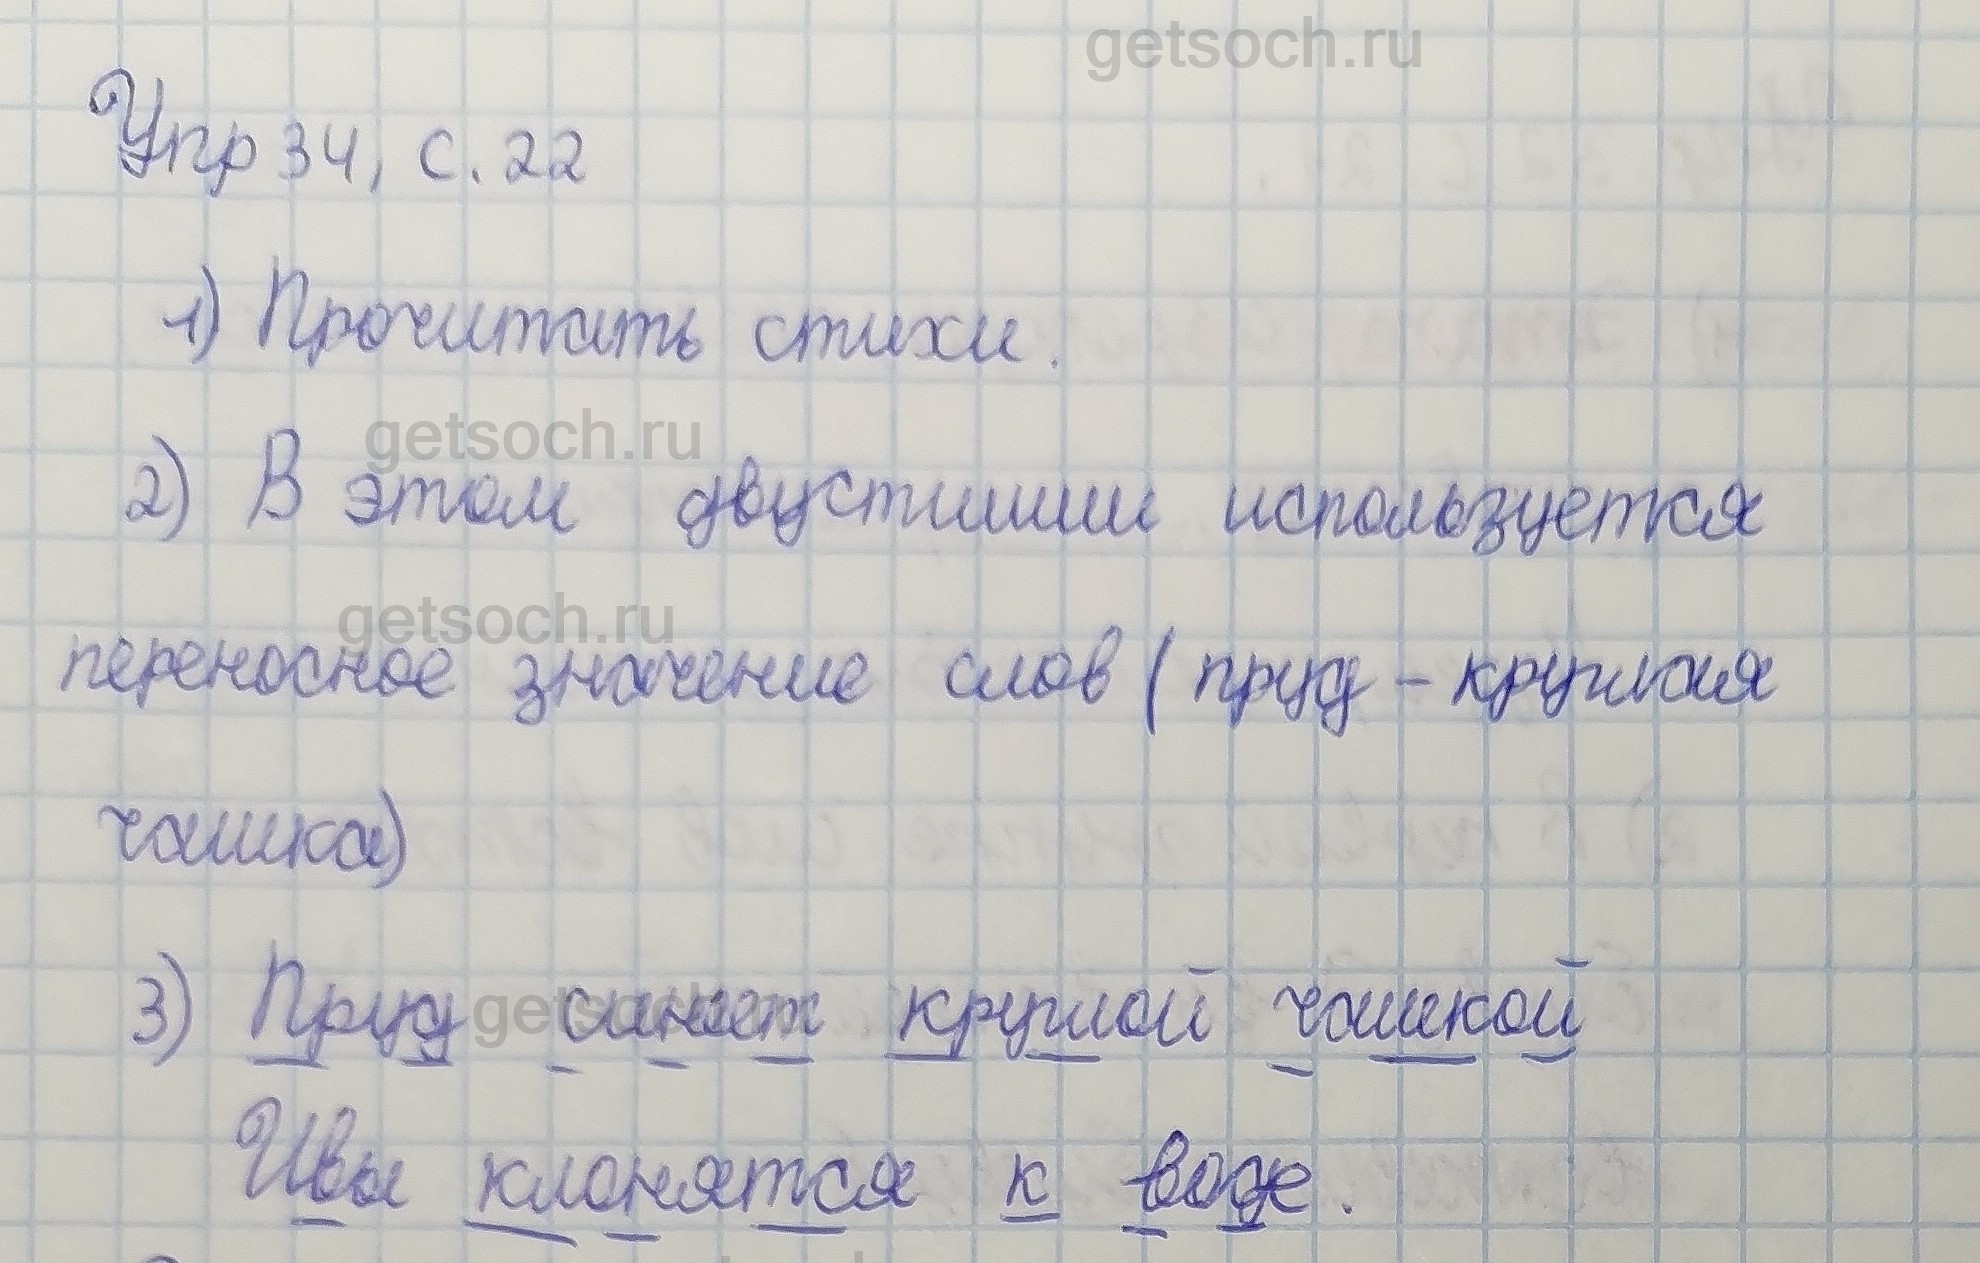 getsoch.ru
Упр 34, с. 22
1) Прочитать стихи.
getsoch.ru
2) В этом двустишии используется
getsoch.ru
переносное значение слов (пруд - круглая
чашка)
3) Пруд синеет круглой чашкой
Ивы клонятся к воде.